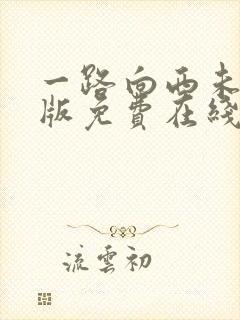 一路向西未
版免费在线
流云初